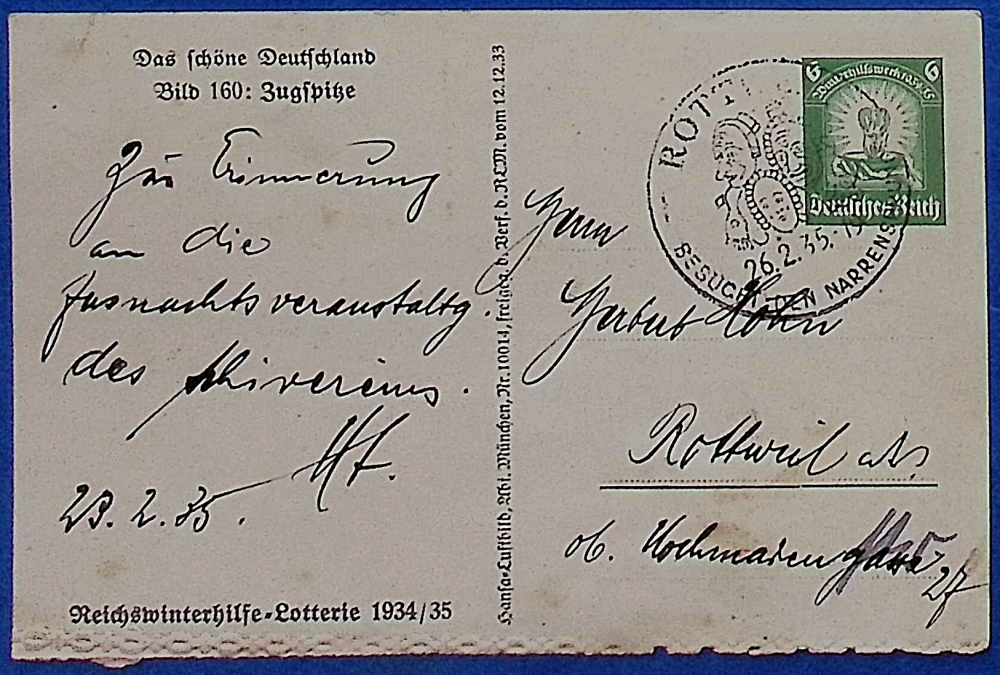 Das schöne Deutschland
Bild 160: Zugspitze
Zur Erinnerung
an die
Fasnachtsveranstaltg.
des Skivereins.
23.2.35.
Reichswinterhilfe-Lotterie 1934/35
Hansa-Luftbild, Abt. München, Nr. 10014, freigeg. d. Verf. d. RLM. vom 12.12.33
6 6
Winterhilfswerk 1934/35
Deutsches Reich
ROTT
26.2.35.-19
BESUCHT DEN NARRENS
Herrn
Herbert
Rottweil a/N
ob. Hochmaiengasse 27